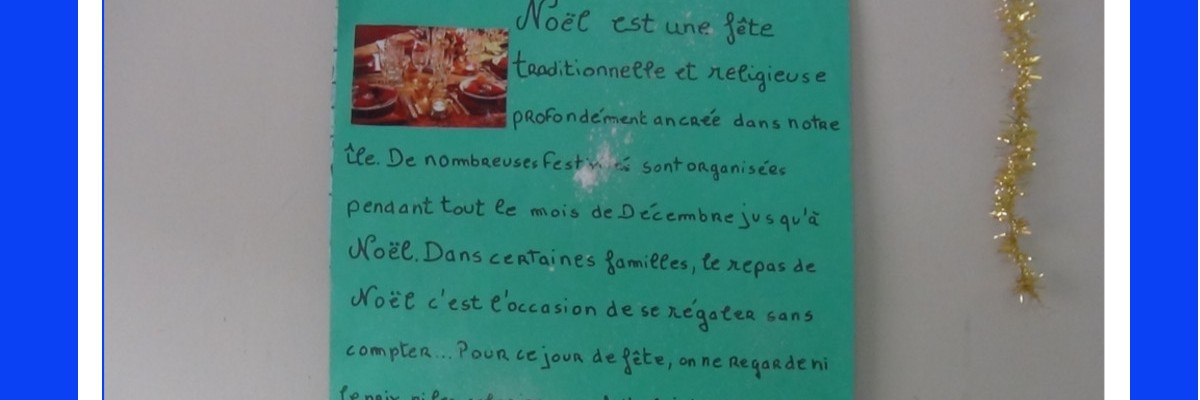 Noël est une fête
traditionnelle et religieuse
profondément ancrée dans notre
île. De nombreuses festivités sont organisées
pendant tout le mois de Décembre jusqu'à
Noël. Dans certaines familles, le repas de
Noël c'est l'occasion de se régaler sans
compter... Pour ce jour de fête, on ne regarde ni